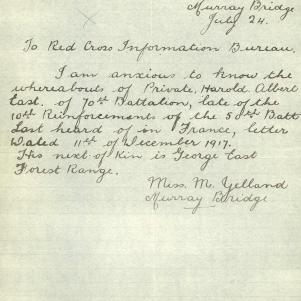 Murray Bridge
July 24.
To Red Cross Information Bureau.
I am anxious to know the
whereabouts of Private, Harold Albert
East. of 70th Battalion, late of the
10th Reinforcements of the 50th Batt
Last heard of in France, letter
Dated 11th of December 1917.
His next of Kin is George East
Forest Range.
Miss. M. Yelland
Murray Bridge